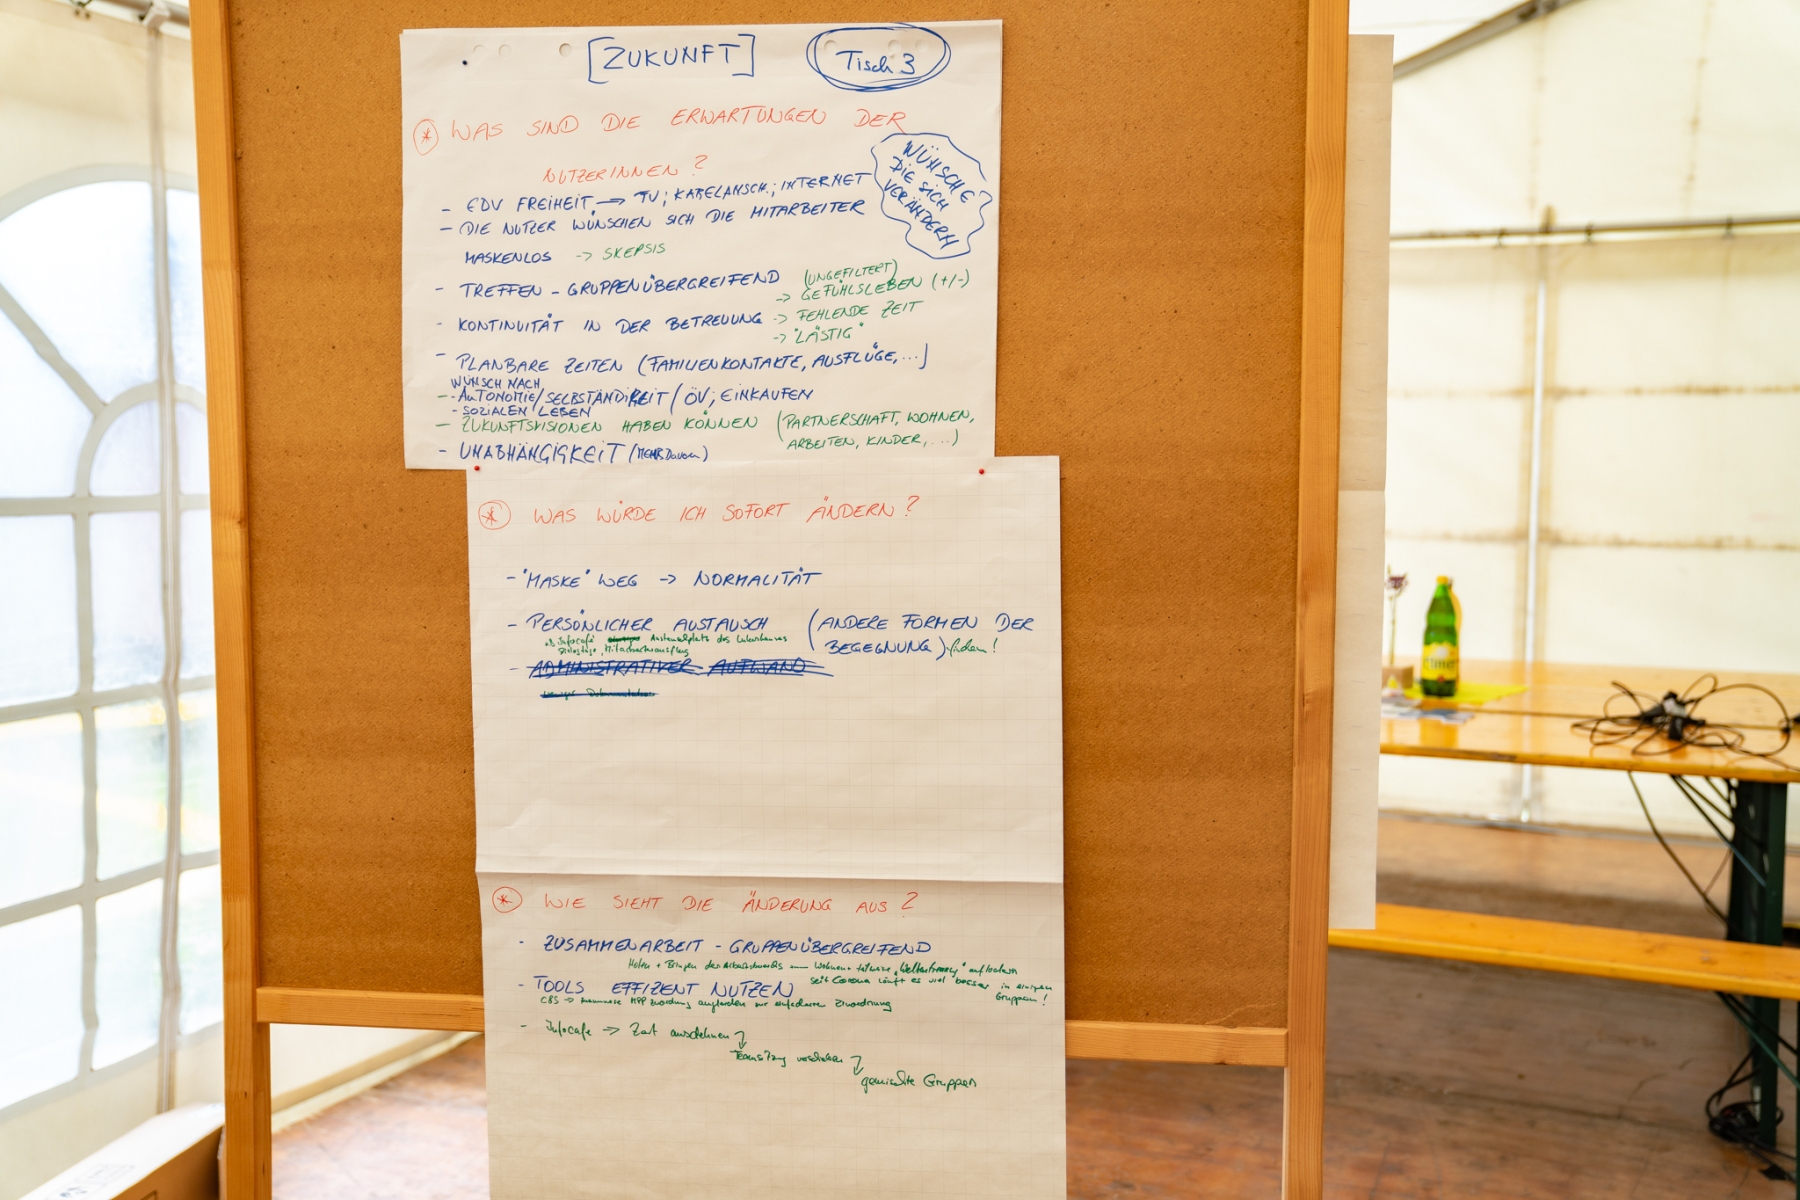 [ZUKUNFT]
Tisch 3
* WAS SIND DIE ERWARTUNGEN DER
NUTZERINNEN?
WÜNSCHE
DIE SICH
VERÄNDERN
- EDV FREIHEIT → TV; KABELANSCH.; INTERNET
- DIE NUTZER WÜNSCHEN SICH DIE MITARBEITER
MASKENLOS -> SKEPSIS
- TREFFEN - GRUPPENÜBERGREIFEND (UNGEFILTERT)
-> GEFÜHLSLEBEN (+/-)
- KONTINUITÄT IN DER BETREUUNG -> FEHLENDE ZEIT
-> "LÄSTIG"
- PLANBARE ZEITEN (FAMILIENKONTAKTE, AUSFLÜGE, ...)
WUNSCH NACH
- AUTONOMIE/SELBSTÄNDIGKEIT / ÖV; EINKAUFEN
- SOZIALEN LEBEN
- ZUKUNFTSVISIONEN HABEN KÖNNEN (PARTNERSCHAFT, WOHNEN,
ARBEITEN, KINDER, ...)
- UNABHÄNGIGKEIT (MEHR DAVON)
* WAS WÜRDE ICH SOFORT ÄNDERN?
- "MASKE" WEG -> NORMALITÄT
- PERSÖNLICHER AUSTAUSCH (ANDERE FORMEN DER
BEGEGNUNG) finden!
Infocafé Austauschplatz des
- ADMINISTRATIVER AUFWAND
weniger Dokumentation
* WIE SIEHT DIE ÄNDERUNG AUS?
- ZUSAMMENARBEIT - GRUPPENÜBERGREIFEND
Holen + Bringen
seit Corona läuft es viel besser in einigen
Gruppen!
- TOOLS EFFIZIENT NUTZEN
CBS -> zur einfacheren Zuordnung
- Infocafe -> Zeit ausdehnen
Teamsitzung verschieben
gemischte Gruppen